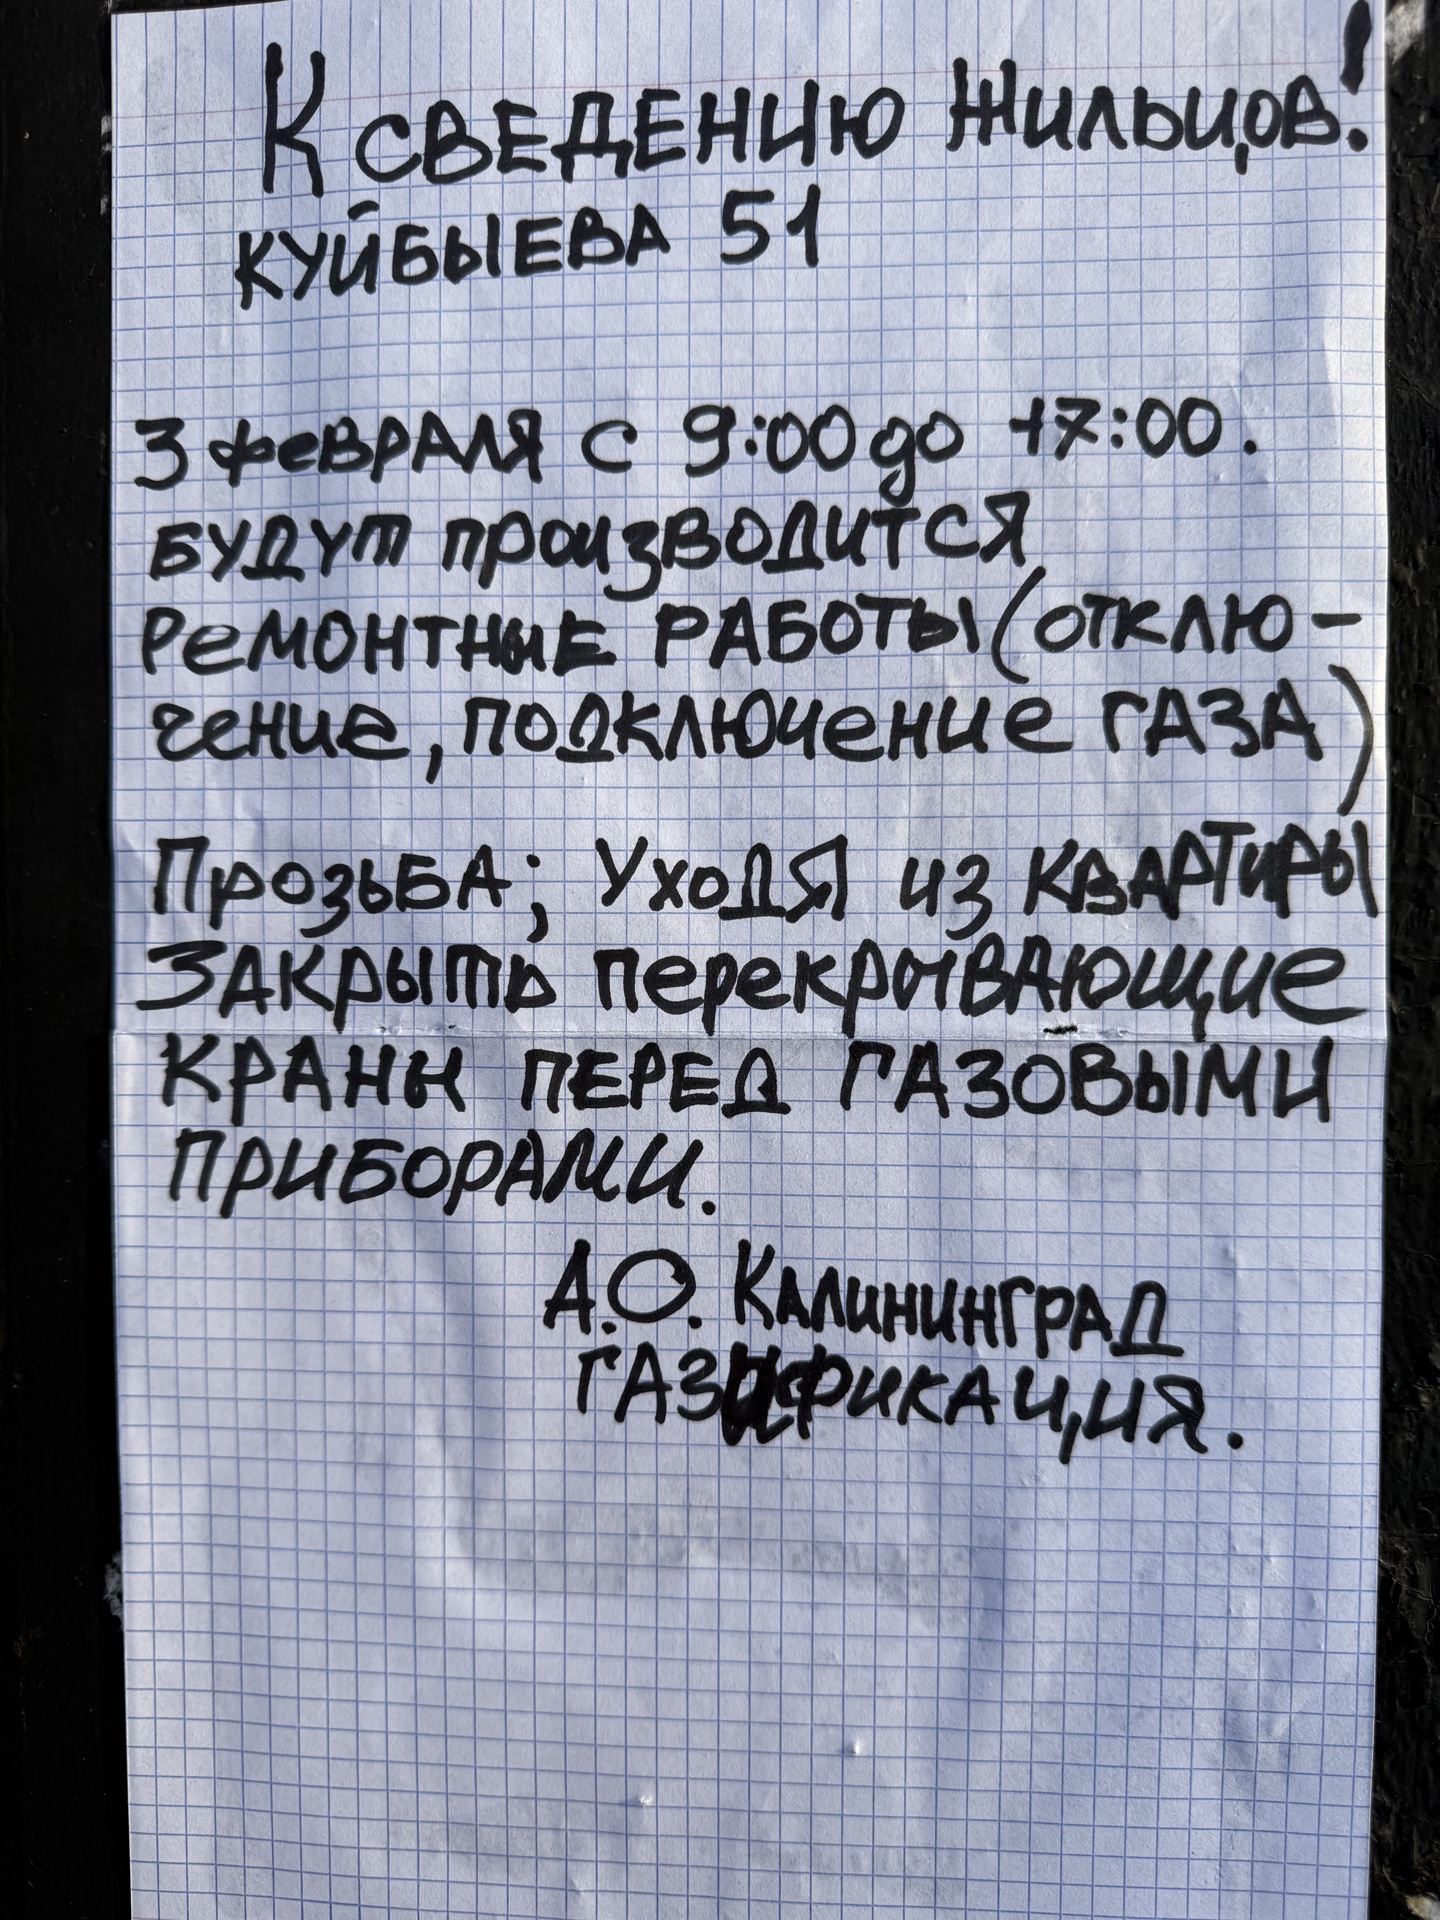 К СВЕДЕНИЮ ЖИЛЬЦОВ!
КУЙБЫЕВА 51
3 февРАЛЯ с 9:00 до 17:00.
БУДУТ производится
Ремонтные РАБОТЫ (отклю-
чение, подключение ГАЗА)
ПрозьБА; Уходя из КВАРТИРЫ
ЗАКРЫТЬ перекрывающие
КРАНЫ ПЕРЕД ГАЗОВЫМИ
ПРИБОРАМИ.
А.О. КАЛИНИНГРАД
ГАЗИФИКАЦИЯ.